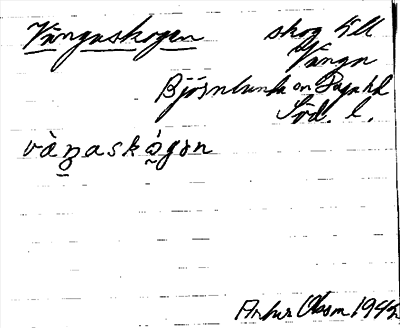 Vångaskogen skog till
Vånga
Björnlunda sn Daga hd
Söd. l.
và̀ŋaskó̀gən
Artur Olsson 1942